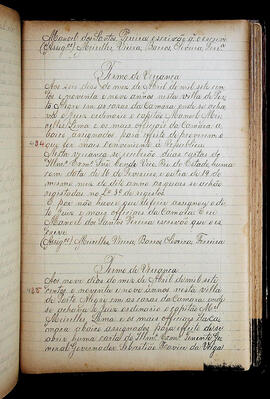 Manoel dos Santos Pereira escrivão q o escrevi
(Assig.os) Meirelles, Vieira, Barros, Oliveira, Ferr.a
Termo de Vereança
Aos seis dias do mez de Abril de mil sete cen
tos e noventa e nove annos nesta villa de Por
to Alegre em as casas da Camara onde se acha
va o Juiz ordinario o capitão Manoel Mei
relles Lima e os mais officiaes da Camara, a
baixo assignados para effeito de proverem o
que for mais conveniente a Republica
434
Nesta vereança se receberão duas cartas do
com data de 16 de Fevereiro, e outra de 19 do
mesmo mez de dito anno as quaes se achão
registadas no L.o 3.o de registos.
E por não haver que deferir assigney, o di
to Juiz e mais officiaes da Camara Eu
Manoel dos Santos Pereira escrivão que o es
crevi
(Assig.os) Meirelles Vieira, Barros Oliveira Ferreira
Termo de Vereança
Aos nove dias do mez de Abril de mil sete
435
centos e noventa e nove annos nesta villa
de Porto Alegre em as casas da Camara onde
se achava o Juiz ordinario o capitão M.el
Meirelles Lima, e os mais officiaes da Ca
mara abaixo assignados para effeito de se
abrir huma carta do Illmo. Exmo. Tenente Ge
neral Governador Sebastião Xavier da Veiga